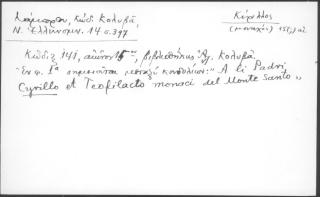 Λάμπρου, Κώδ. Κολυβᾶ,
Ν. Ἑλληνομν. 14 σ. 397
Κύριλλος
(μοναχός) 15ος αἰ.
Κῶδιξ 141, αἰῶνος 15ου, βιβλιοθήκης Ἀλ. Κολυβᾶ
Ἐν φ. 1α σημειοῦται μεταξὺ κονδυλίων: "A li Padri
Cyrillo et Teofilacto monaci del Monte Santo"